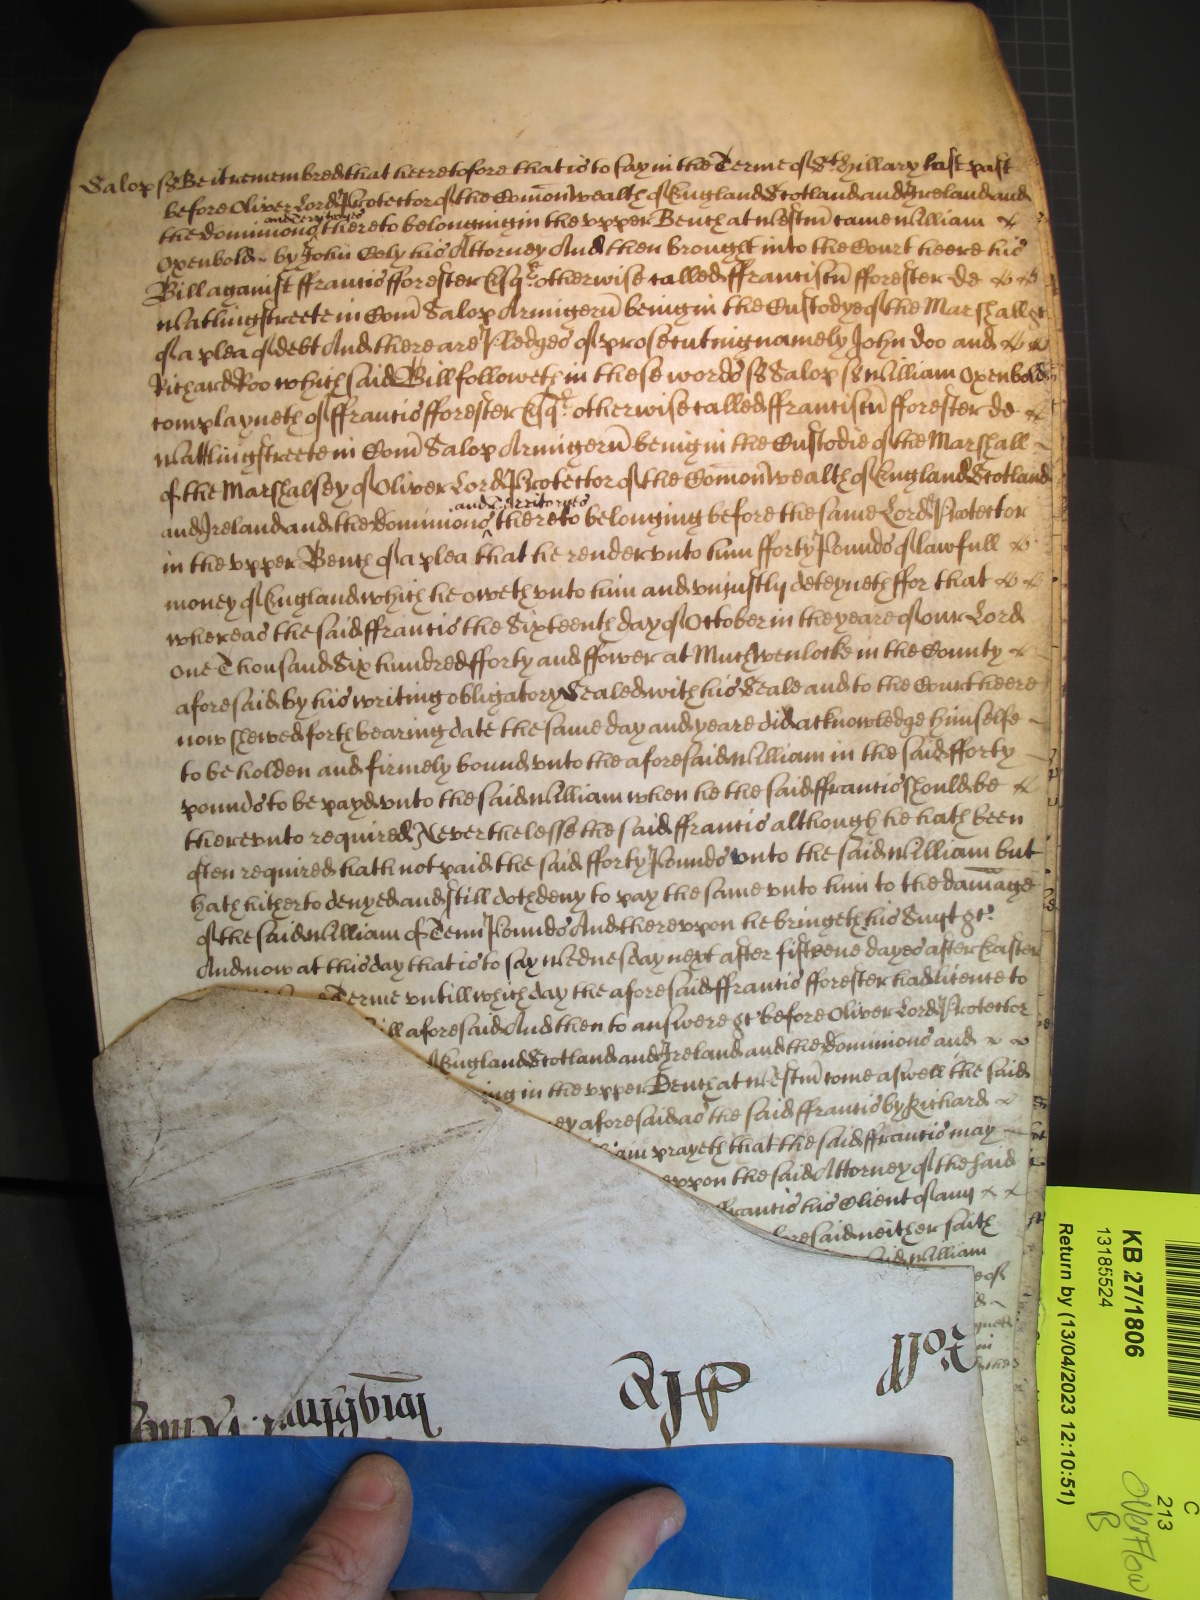 Salop ss Be it remembred that heeretofore that is to say in the Terme of St. Hillary last past
before Oliver Lord Protector of the Comonwealth of England Scotland and Ireland and
the dominions and Terytoryes thereto belonginge in the vpper Bench at Westm came William
Oxenbold by John Coly his Attorney And then brought into the Court heere his
Bill against ffrancis fforester Esqr. otherwise called ffranciscu fforester de
Watlingstreete in Com Salop Armigeru beinge in the Custodye of the Marshall &c
of a plea of debt And there are Pledges of prosecuting namely John Doo and
Richard Roo which said Bill followeth in these words ss Salop ss William Oxenbold
complayneth of ffrancis fforester Esqr. otherwise called ffranciscu fforester de
Watlingstreete in Com Salop Armigeru being in the Custodie of the Marshall
of the Marshalsey of Oliver Lord Protector of the Comonwealth of England Scotland
and Ireland and the Dominions and Territoryes thereto belonging before the same Lord Protector
in the vpper Bench of a plea that he render vnto him fforty Pounds of lawfull
money of England which he oweth vnto him and vniustly deteyneth ffor that
whereas the said ffrancis the Sixteenth day of October in the yeare of our Lord
one Thousand Six hundred fforty and ffower at Much Wenlocke in the County
aforesaid by his writing obligatory Sealed with his Seale and to the Court heere
now shewed forth bearing date the same day and yeare did acknowledge himselfe
to be holden and firmely bound vnto the aforesaid William in the said fforty
pounds to be payd vnto the said William when he the said ffrancis should be
therevnto required Neverthelesse the said ffrancis although he hath been
often required hath not paid the said fforty Pounds vnto the said William but
hath hitherto denyed and still doth deny to pay the same vnto him to the damage
of the said William of Tenn Pounds And therevpon he bringeth his Suyt &c.
And now at this day that is to say Wednesday next after fifteene dayes after Easter
Terme vntill which day the aforesaid ffrancis fforester had licence to
ill aforesaid And then to answere &c before Oliver Lord Protector
England Scotland and Ireland and the Dominions and
ing in the vpper Bench at Westm come aswell the said
ey aforesaid as the said ffrancis by Richard
am prayeth that the said ffrancis may
vppon the said Attorney of the said
ffrancis his Client of any
foresaid neither saith
said William
Roll
KB 27/1806
13185524
Return by (13/04/2023 12:10:51)
C
213
Overflow
B